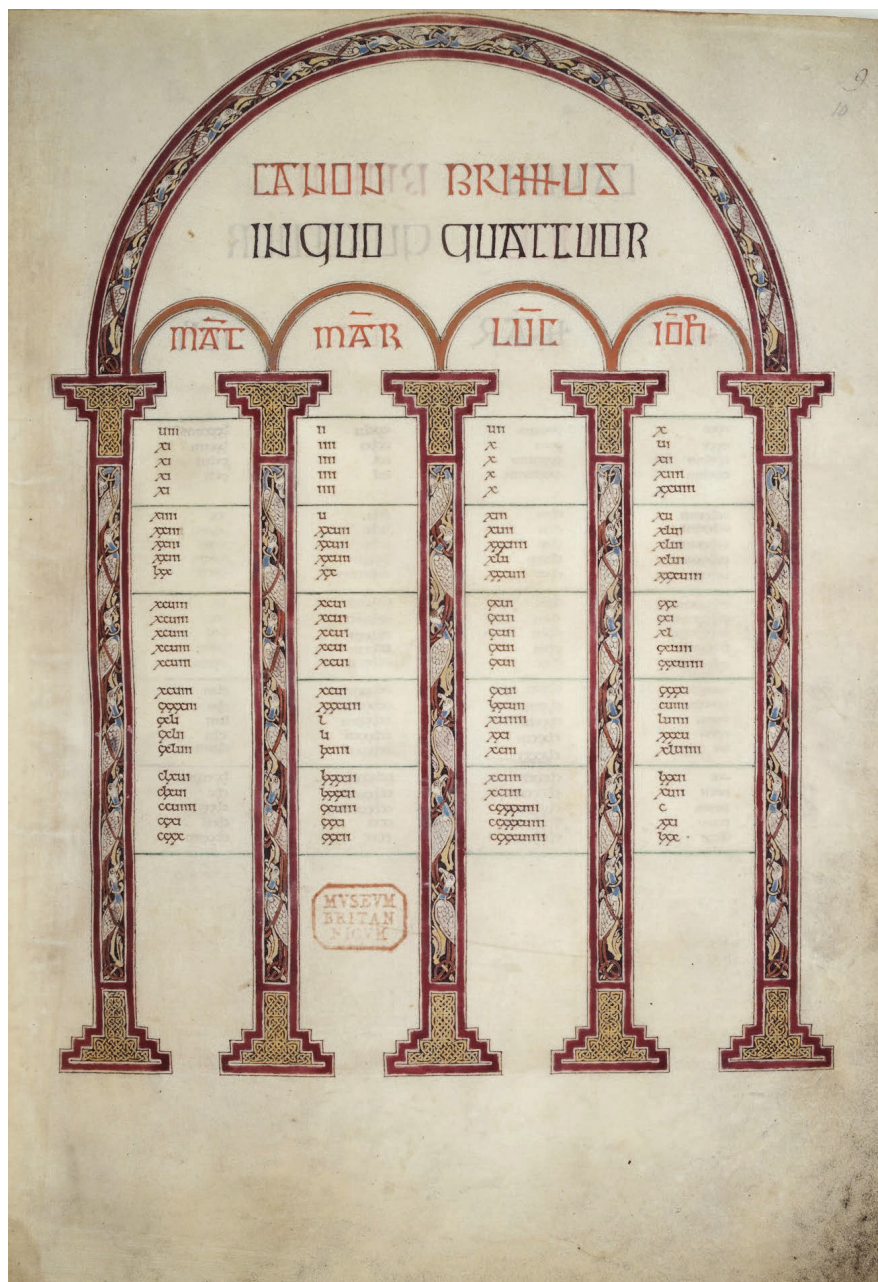 9
10
CANON PRIMUS
IN QUO QUATTUOR
MAT MAR LUC IOH
uiii ii uii x
xi iiii x ui
xi iiii x xii
xi iiii x xiiii
xi iiii x xxuiii
xiiii u xiii xu
xxiii xxuii xuii xlui
xxiii xxuii xxxiiii xlui
xxiii xxuii xlu xlui
lxx xx xxxuii xxxuiii
xcuiii xcui cxui cxx
xcuiii xcui cxui cxi
xcuiii xcui cxui xl
xcuiii xcui cxui cxliiii
xcuiii xcui cxui cxxuiiii
xcuiii xcui cxui cxxxi
cxxxiii xxxuii lxxuii cuiiii
cxli l xuiiii luiiii
cxlii li xxi xxxu
cxluii lxiiii xciii xluiiii
clxui lxxxii xciiii lxxii
clxui lxxxii xciiii
ccuiiii cxuiiii ccxxxiiii c
ccxi cxxi ccxxxuiii xxi
ccxx cxxii ccxxxuiiii lxx
MVSEVM
BRITAN
NICVM